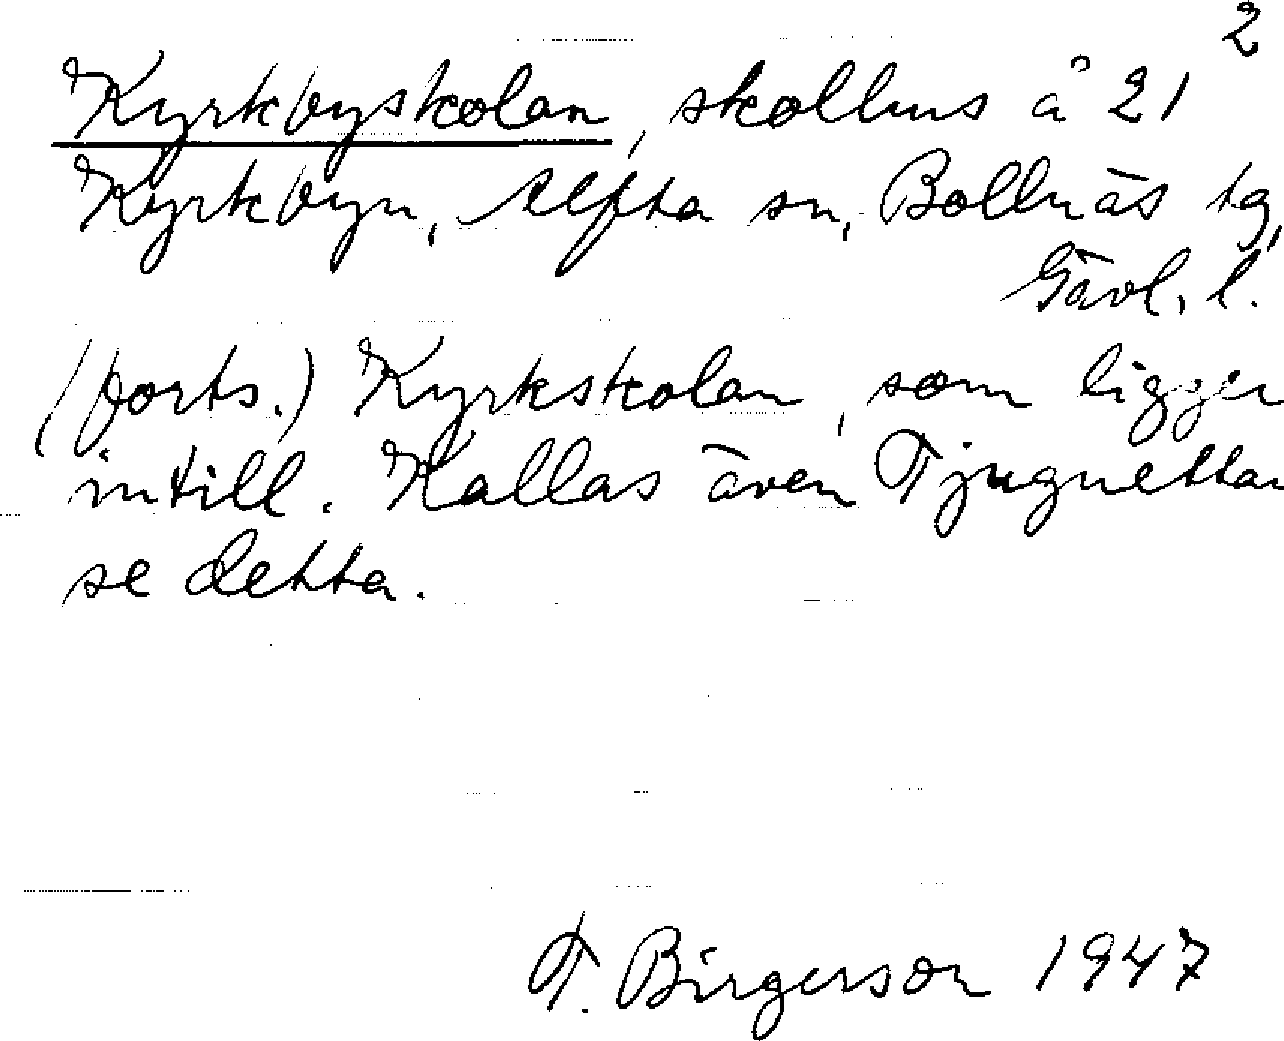 2
Kyrkbyskolan, skolhus å 21
Kyrkbyn, Alfta sn, Bollnäs tg,
Gävl. l.
(forts.) Kyrkskolan, som ligger
intill. Kallas även Tjuguettan
se detta.
T. Birgerson 1947